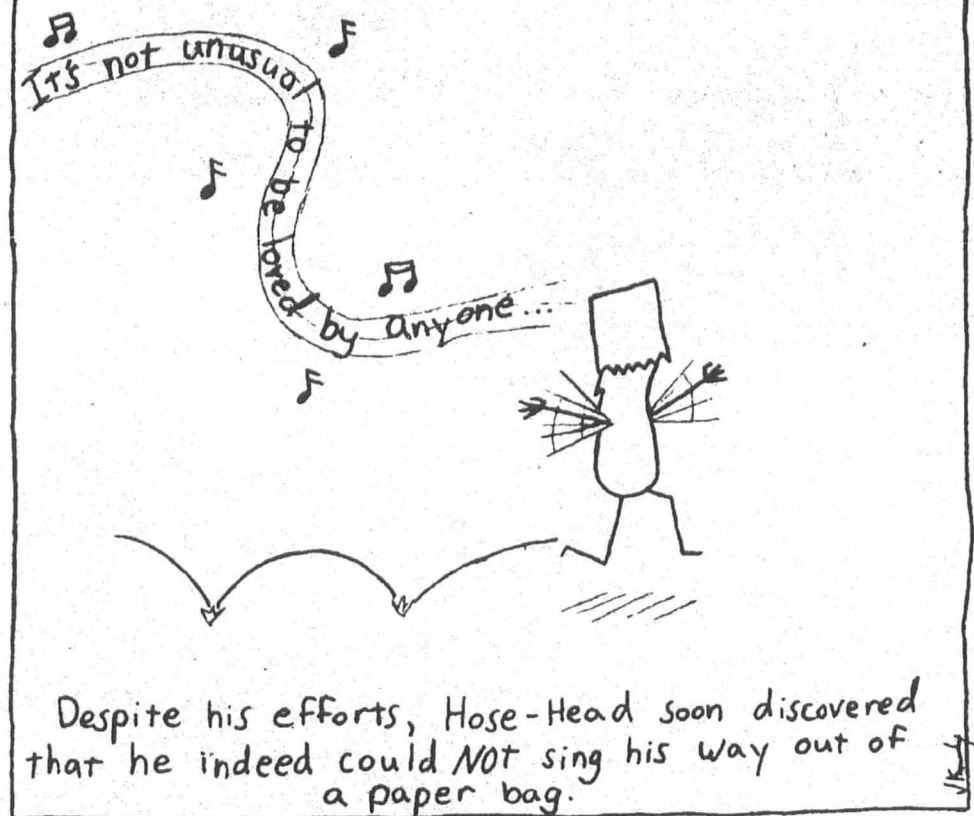 It's not unusual to be loved by anyone...
Despite his efforts, Hose-Head soon discovered
that he indeed could NOT sing his way out of
a paper bag.